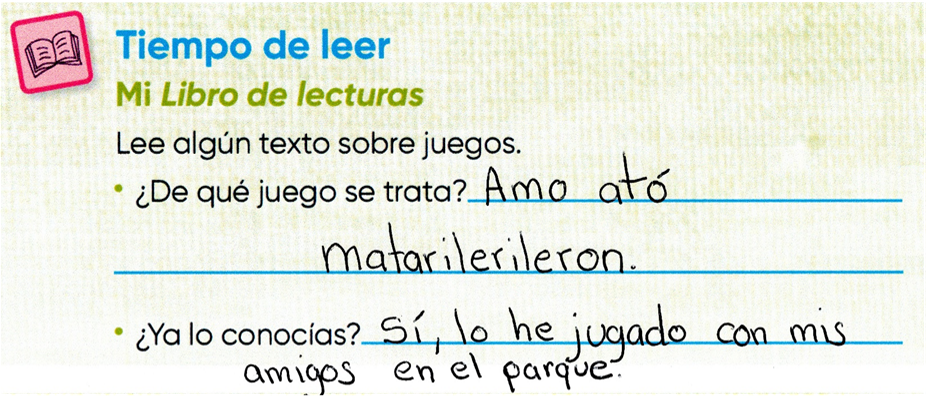 Tiempo de leer
Mi Libro de lecturas
Lee algún texto sobre juegos.
• ¿De qué juego se trata? Amo ató
matarilerileron.
• ¿Ya lo conocías? Sí, lo he jugado con mis
amigos en el parque.